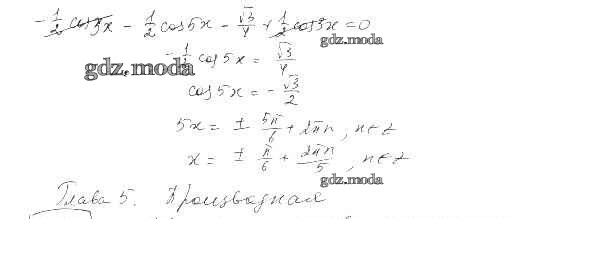 -1/2 cos 3x - 1/2 cos 5x - √3/4 + 1/2 cos 3x = 0
gdz.moda
-1/2 cos 5x = √3/4
gdz.moda
cos 5x = -√3/2
5x = ± 5π/6 + 2πn, n∈Z
x = ± π/6 + 2πn/5, n∈Z
gdz.moda
Глава 5. Производная